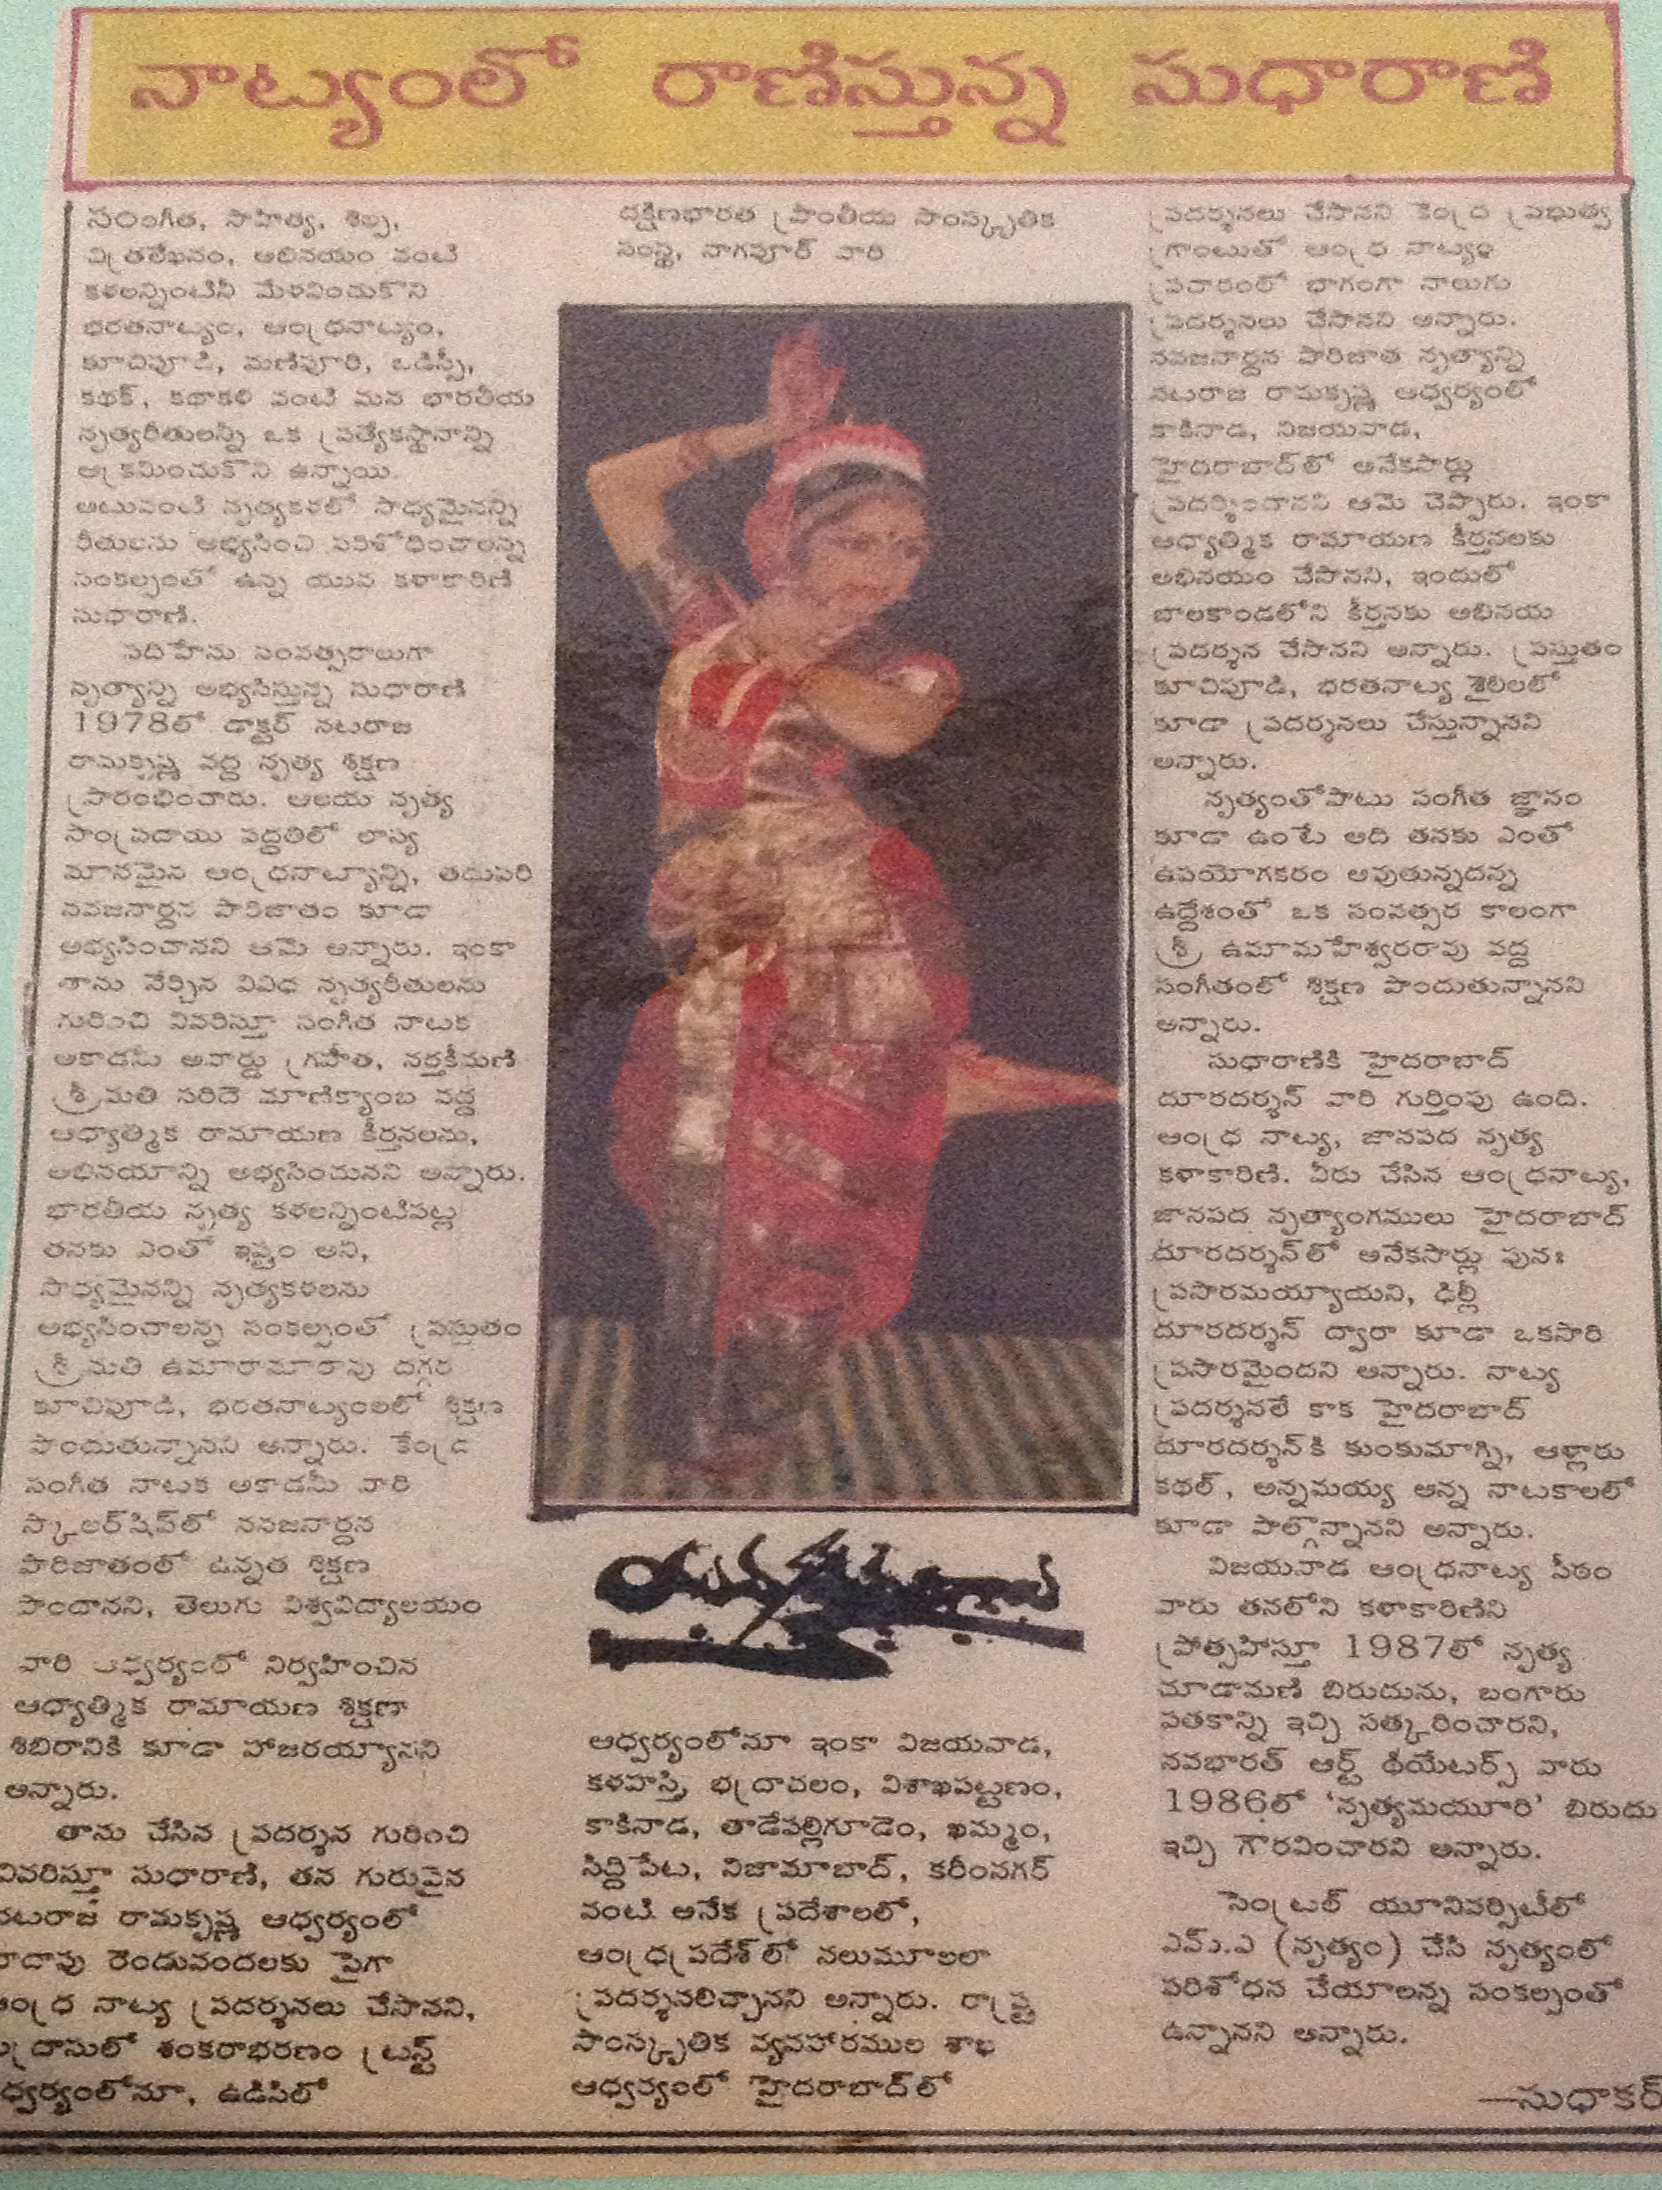 నాట్యంలో రాణిస్తున్న సుధారాణి
సంగీత, సాహిత్య, శిల్ప,
చిత్రలేఖనం, అభినయం వంటి
కళలన్నింటినీ మేళవించుకొని
భరతనాట్యం, ఆంధ్రనాట్యం,
కూచిపూడి, మణిపూరి, ఒడిస్సీ,
కథక్, కథాకళి వంటి మన భారతీయ
నృత్యరీతులన్నీ ఒక ప్రత్యేకస్థానాన్ని
ఆక్రమించుకొని ఉన్నాయి.
అటువంటి నృత్యకళలో సాధ్యమైనన్ని
రీతులను అభ్యసించి పరిశోధించాలన్న
సంకల్పంతో ఉన్న యువ కళాకారిణి
సుధారాణి.
పదిహేను సంవత్సరాలుగా
నృత్యాన్ని అభ్యసిస్తున్న సుధారాణి
1978లో డాక్టర్ నటరాజ
రామకృష్ణ వద్ద నృత్య శిక్షణ
ప్రారంభించారు. ఆలయ నృత్య
సాంప్రదాయ పద్ధతిలో లాస్య
మానమైన ఆంధ్రనాట్యాన్ని, తదుపరి
నవజనార్దన పారిజాతం కూడా
అభ్యసించానని ఆమె అన్నారు. ఇంకా
తాను నేర్చిన వివిధ నృత్యరీతులను
గురించి వివరిస్తూ సంగీత నాటక
అకాడమీ అవార్డు గ్రహీత, నర్తకీమణి
శ్రీమతి సరిదె మాణిక్యాంబ వద్ద
ఆధ్యాత్మిక రామాయణ కీర్తనలను,
అభినయాన్ని అభ్యసించునని అన్నారు.
భారతీయ నృత్య కళలన్నింటిపట్ల
తనకు ఎంతో ఇష్టం అని,
సాధ్యమైనన్ని నృత్యకళలను
అభ్యసించాలన్న సంకల్పంతో ప్రస్తుతం
శ్రీమతి ఉమారామారావు దగ్గర
కూచిపూడి, భరతనాట్యంలలో శిక్షణ
పొందుతున్నానని అన్నారు. కేంద్ర
సంగీత నాటక అకాడమీ వారి
స్కాలర్‌షిప్‌లో నవజనార్దన
పారిజాతంలో ఉన్నత శిక్షణ
పొందానని, తెలుగు విశ్వవిద్యాలయం
వారి ఆధ్వర్యంలో నిర్వహించిన
ఆధ్యాత్మిక రామాయణ శిక్షణా
శిబిరానికి కూడా హాజరయ్యానని
అన్నారు.
తాను చేసిన ప్రదర్శన గురించి
వివరిస్తూ సుధారాణి, తన గురువైన
నటరాజ రామకృష్ణ ఆధ్వర్యంలో
దాదాపు రెండువందలకు పైగా
ఆంధ్ర నాట్య ప్రదర్శనలు చేసానని,
మద్రాసులో శంకరాభరణం ట్రస్ట్
ఆధ్వర్యంలోనూ, ఉడిపిలో
దక్షిణభారత ప్రాంతీయ సాంస్కృతిక
సంస్థ, నాగపూర్ వారి
ఆధ్వర్యంలోనూ ఇంకా విజయవాడ,
కళహస్తి, భద్రాచలం, విశాఖపట్టణం,
కాకినాడ, తాడేపల్లిగూడెం, ఖమ్మం,
సిద్దిపేట, నిజామాబాద్, కరీంనగర్
వంటి అనేక ప్రదేశాలలో,
ఆంధ్రప్రదేశ్‌లో నలుమూలలా
ప్రదర్శనలిచ్చానని అన్నారు. రాష్ట్ర
సాంస్కృతిక వ్యవహారముల శాఖ
ఆధ్వర్యంలో హైదరాబాద్‌లో
ప్రదర్శనలు చేసానని కేంద్ర ప్రభుత్వ
గ్రాంటుతో ఆంధ్ర నాట్యం
ప్రచారంలో భాగంగా నాలుగు
ప్రదర్శనలు చేసానని అన్నారు.
నవజనార్దన పారిజాత నృత్యాన్ని
నటరాజ రామకృష్ణ ఆధ్వర్యంలో
కాకినాడ, విజయవాడ,
హైదరాబాద్‌లో అనేకసార్లు
ప్రదర్శించానని ఆమె చెప్పారు. ఇంకా
ఆధ్యాత్మిక రామాయణ కీర్తనలకు
అభినయం చేసానని, ఇందులో
బాలకాండలోని కీర్తనకు అభినయ
ప్రదర్శన చేసానని అన్నారు. ప్రస్తుతం
కూచిపూడి, భరతనాట్య శైలిలలో
కూడా ప్రదర్శనలు చేస్తున్నానని
అన్నారు.
నృత్యంతోపాటు సంగీత జ్ఞానం
కూడా ఉంటే అది తనకు ఎంతో
ఉపయోగకరం అవుతున్నదన్న
ఉద్దేశంతో ఒక సంవత్సర కాలంగా
శ్రీ ఉమామహేశ్వరరావు వద్ద
సంగీతంలో శిక్షణ పొందుతున్నానని
అన్నారు.
సుధారాణికి హైదరాబాద్
దూరదర్శన్ వారి గుర్తింపు ఉంది.
ఆంధ్ర నాట్య, జానపద నృత్య
కళాకారిణి. వీరు చేసిన ఆంధ్రనాట్య,
జానపద నృత్యాంగములు హైదరాబాద్
దూరదర్శన్‌లో అనేకసార్లు పునః
ప్రసారమయ్యాయని, ఢిల్లీ
దూరదర్శన్ ద్వారా కూడా ఒకసారి
ప్రసారమైందని అన్నారు. నాట్య
ప్రదర్శనలే కాక హైదరాబాద్
దూరదర్శన్‌కి కుంకుమాగ్ని, ఆళ్లారు
కథల్, అన్నమయ్య అన్న నాటకాలలో
కూడా పాల్గొన్నానని అన్నారు.
విజయవాడ ఆంధ్రనాట్య పీఠం
వారు తనలోని కళాకారిణిని
ప్రోత్సహిస్తూ 1987లో నృత్య
చూడామణి బిరుదును, బంగారు
పతకాన్ని ఇచ్చి సత్కరించారని,
నవభారత్ ఆర్ట్ థియేటర్స్ వారు
1986లో 'నృత్యమయూరి' బిరుదు
ఇచ్చి గౌరవించారని అన్నారు.
సెంట్రల్ యూనివర్సిటీలో
ఎమ్.ఎ (నృత్యం) చేసి నృత్యంలో
పరిశోధన చేయాలన్న సంకల్పంతో
ఉన్నానని అన్నారు.
—సుధాకర్